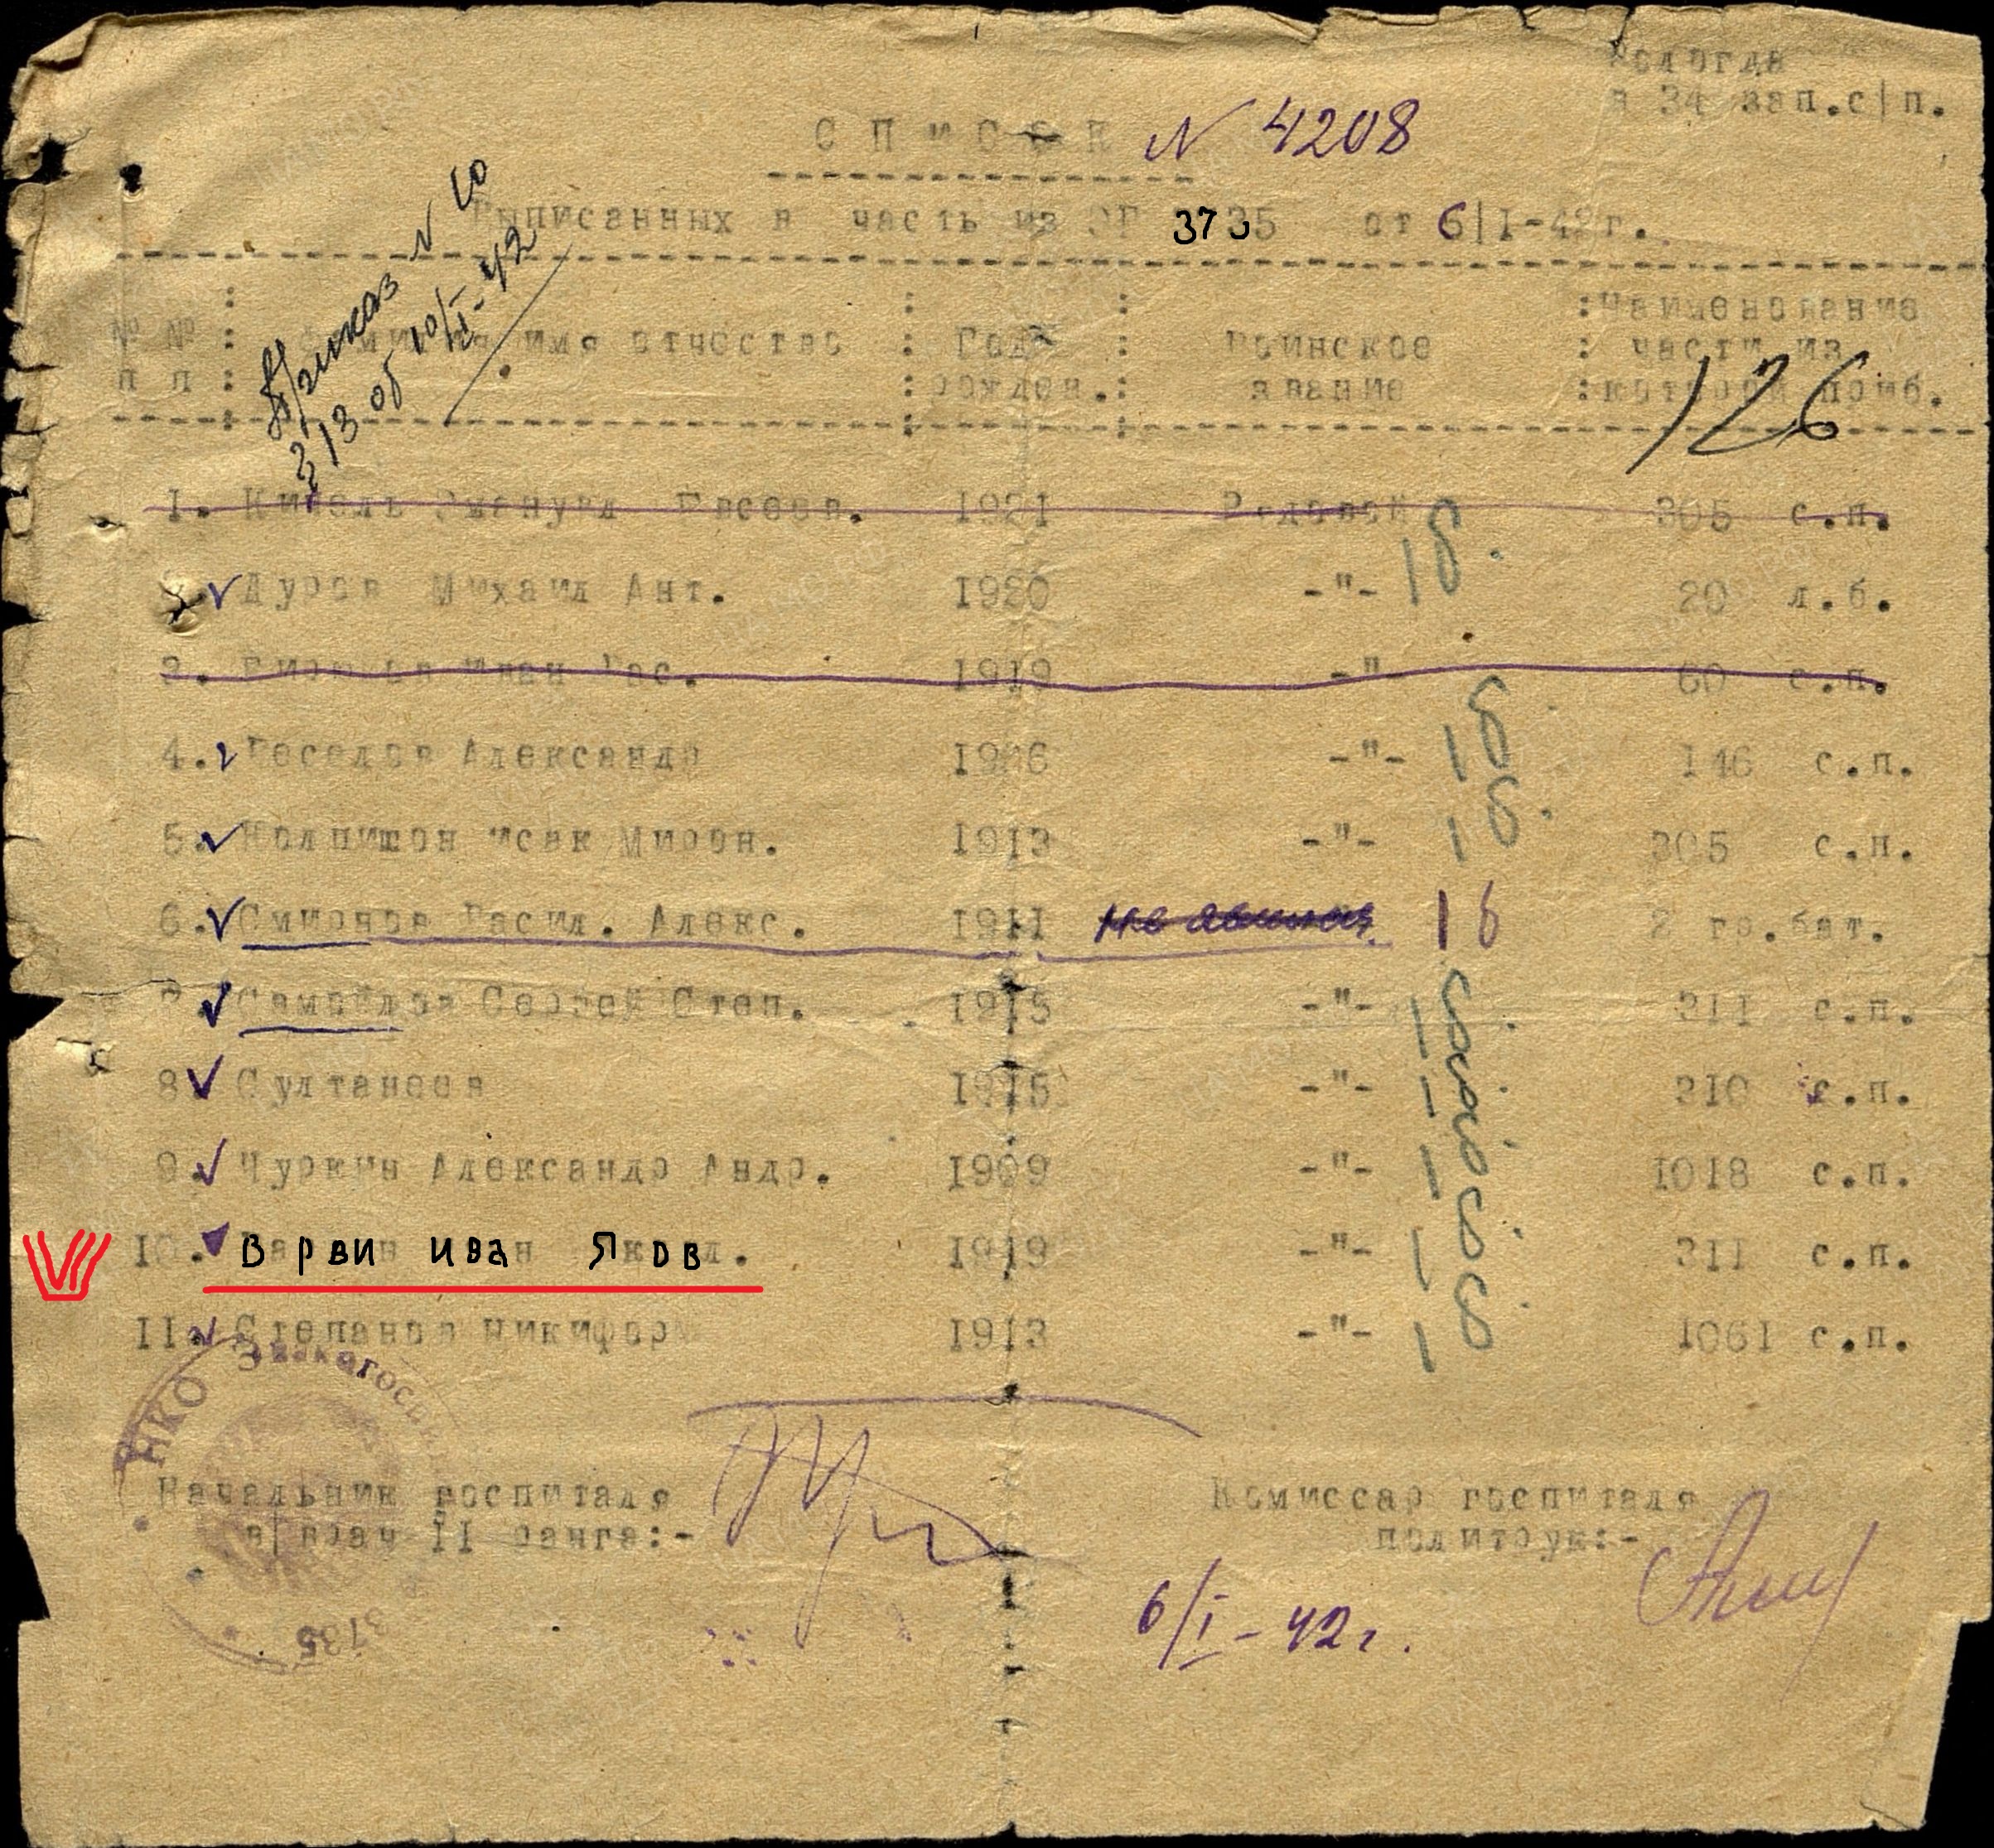 Вологда
в 34 зап.с|п.
С п и с о к № 4208
Выписанных в часть из ЭГ 3735 от 6|I-42г.
Приказ № 10
з/13 об 10/I-42
№ № п п : Фамилия имя отчество : Год рожден. : Воинское звание : Наименование части из которой приб.
126
1. Эмануил Евсеев. 1921 Рядовой 305 с.п.
Дуров Михаил Ант. 1920 -"- 20 л.б.
3. Иван Вас. 1919 -"- 60 с.п.
4. Веселов Александр 1906 -"- 146 с.п.
5. Колпишон Исак Мирон. 1913 -"- 305 с.п.
6. Смирнов Васил. Алекс. 1911 не явился 16 2 гв.бат.
7. Самойлов Сергей Степ. 1915 -"- 311 с.п.
8 Султанеев 1915 -"- 310 с.п.
9. Чуркин Александр Андр. 1909 -"- 1018 с.п.
10. Варвин Иван Яковл. 1919 -"- 311 с.п.
11. Степанов Никифор 1913 -"- 1061 с.п.
НКО Эвакогос
3735
Начальник госпиталя
в|врач II ранга:-
Комиссар госпиталя
политрук:-
6/I-42г.